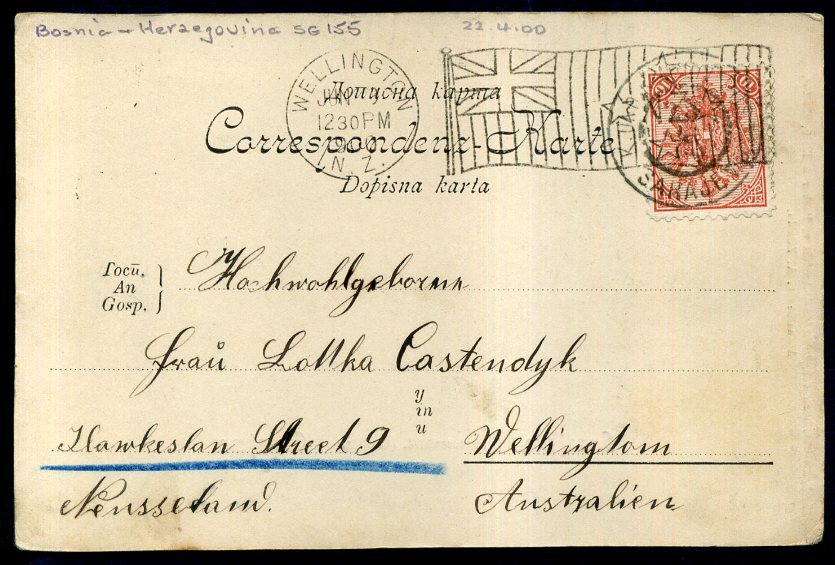 Bosnia - Herzegovina SG 155 22.4.00
WELLINGTON
JUN
1230PM
N.Z.
Дописна карта
Correspondenz-Karte
Dopisna karta
SARAJEVO
Госп.
An
Gosp.
Hochwohlgeboren
Frau Lottka Castendyk
у
in
u
Hawkestan Street 9 Wellingtom
Neusseland. Australien